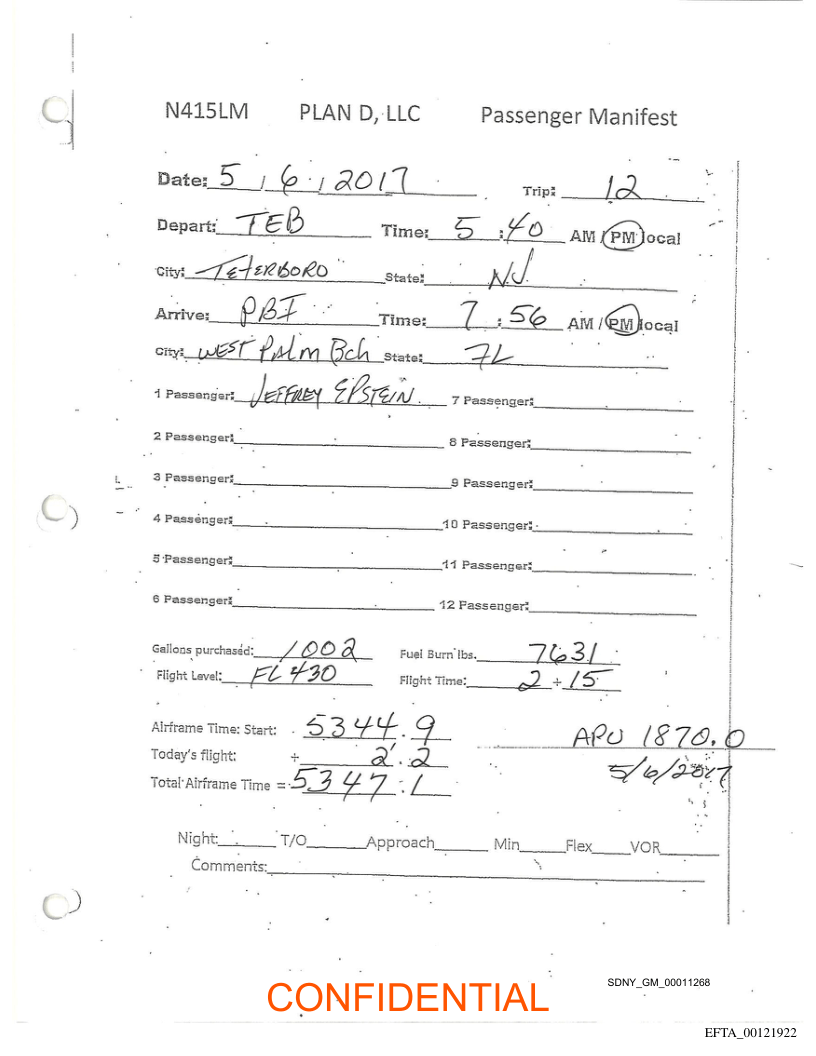 N415LM PLAN D, LLC Passenger Manifest
Date: 5 / 6 / 2017 Trip: 12
Depart: TEB Time: 5 :40 AM / PM local
City: TETERBORO State: NJ
Arrive: PBI Time: 7 : 56 AM / PM local
City: WEST PAlm Bch State: FL
1 Passenger: JEFFREY EPSTEIN 7 Passenger:
2 Passenger: 8 Passenger:
3 Passenger: 9 Passenger:
4 Passenger: 10 Passenger:
5 Passenger: 11 Passenger:
6 Passenger: 12 Passenger:
Gallons purchased: 1002 Fuel Burn lbs. 7631
Flight Level: FL 430 Flight Time: 2 + 15
Airframe Time: Start: 5344.9 APU 1870.0
Today's flight: + 2.2 5/6/2017
Total Airframe Time = 5347.1
Night: T/O Approach Min Flex VOR
Comments:
SDNY_GM_00011268
CONFIDENTIAL
EFTA_00121922